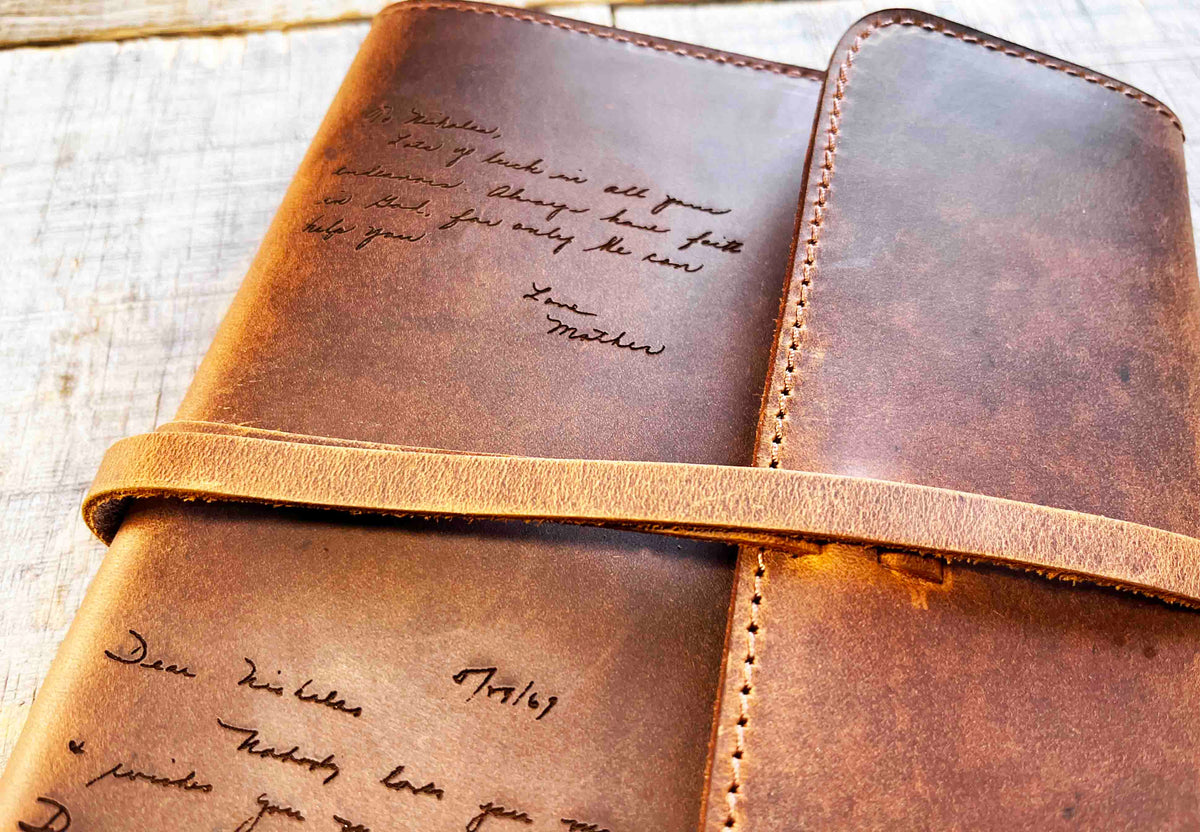 To Nicholas,
Lots of luck in all your
endeavors. Always have faith
in God, for only He can
help you
Love
Mother
Dear Nicholas
Nobody loves you
& wishes you